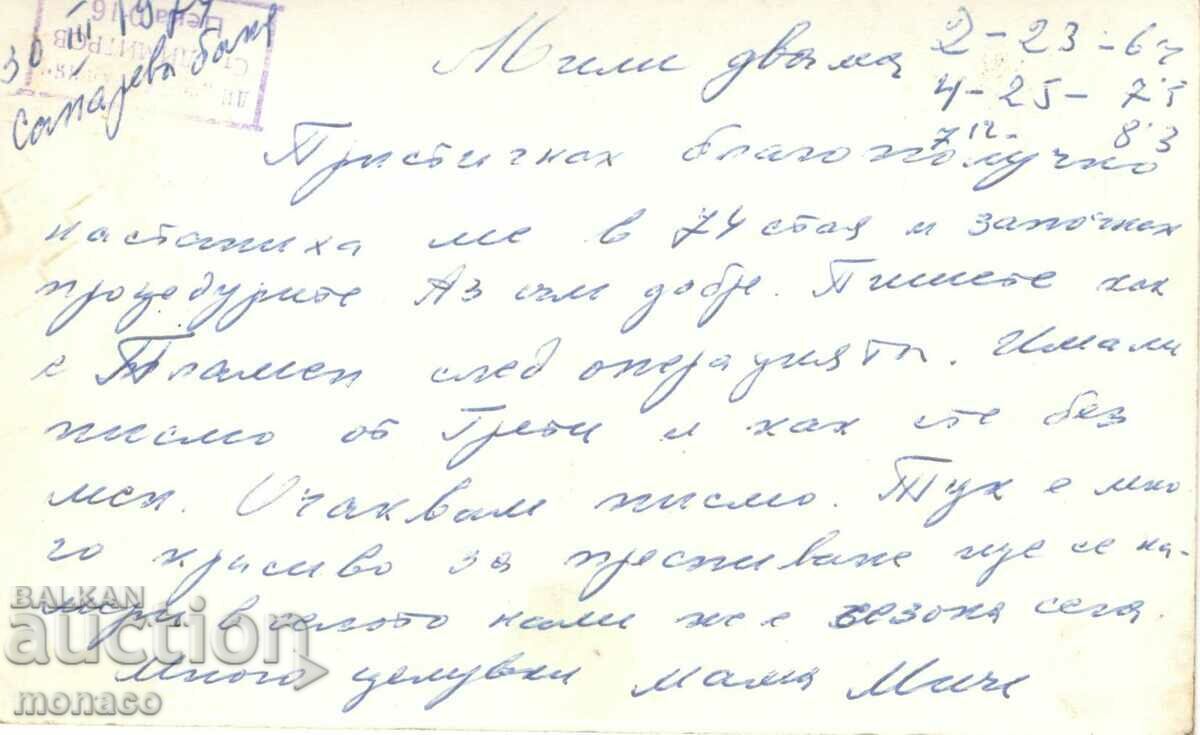 30 III 19
Сапарева баня
Мили двама
2-23-64
4-25-75
7 12- 83
Пристигнах благополучно
настаниха ме в 74 стая и започнах
процедурите Аз съм добре. Пишете как
е Пламен след операцията. Имали
писмо от Грети и как сте без
мен. Очаквам писмо. Тук е мно
го красиво за преспиване ще се на-
мери в селото нали не е сезона сега.
Много целувки мама Мичи
BALKAN
auction
monaco